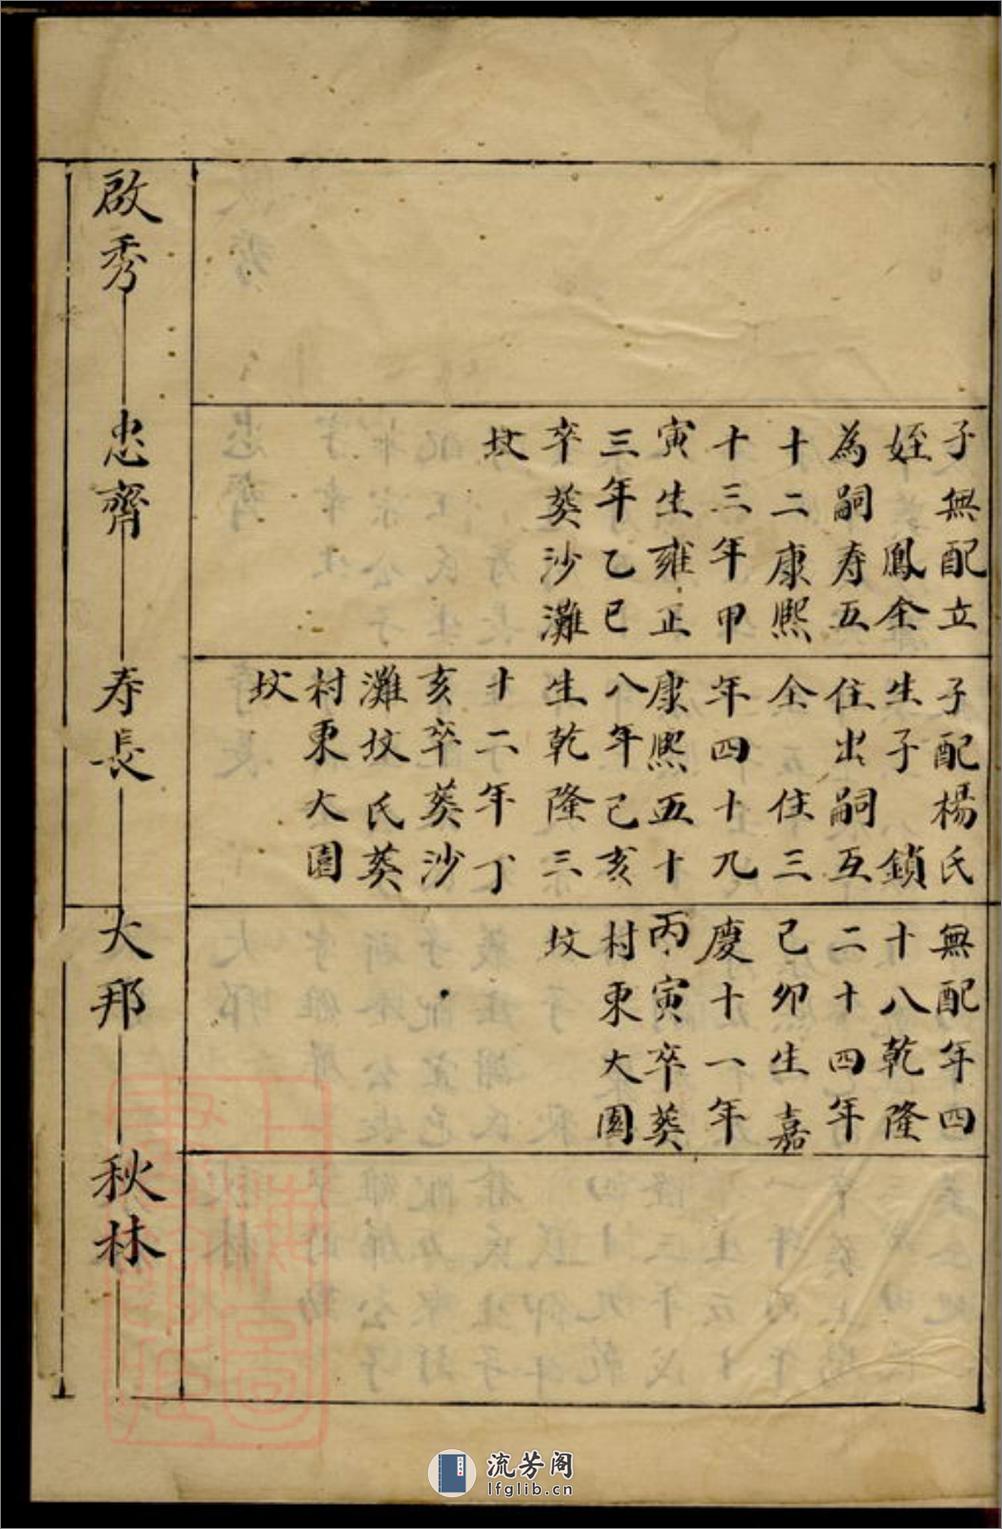 子無配立
姪鳳全
為嗣寿五
十二康熙
十三年甲
寅生雍正
三年乙巳
卒葵沙灘
坟
子配楊氏
生子鎖
住出嗣互
全五住三
年四十九
康熙五十
八年己亥
生乾隆三
十二年丁
亥卒葵沙
灘坟氏葵
村東大園
坟
無配年四
十八乾隆
二十四年
己卯生嘉
慶十一年
丙寅卒葵
村東大園
坟
啟秀
忠齊
寿長
大邦
秋林
流芳阁
lfglib.cn